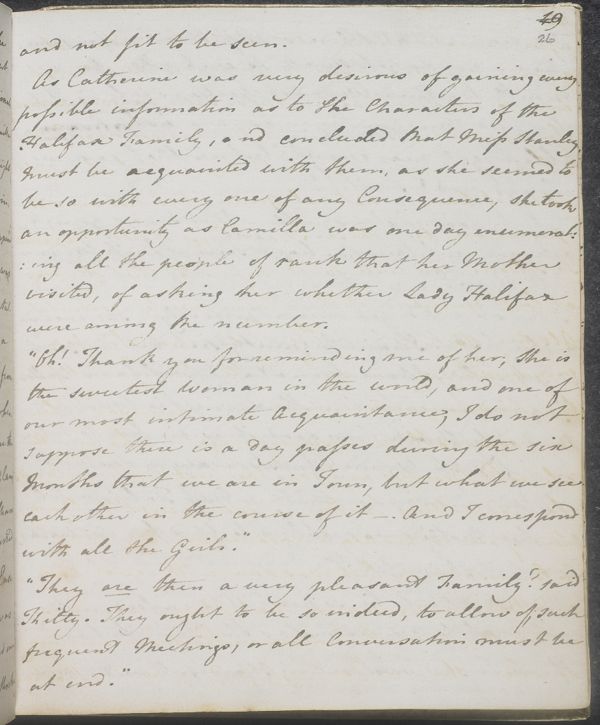 49
26
and not fit to be seen.
As Catherine was very desirous of gaining every
possible information as to the Characters of the
Halifax Family, and concluded that Miss Stanley
must be acquainted with them, as she seemed to
be so with every one of any Consequence, she took
an opportunity as Camilla was one day enumerat:
:ing all the people of rank that her Mother
visited, of asking her whether Lady Halifax
were among the number.
"Oh! Thank you for reminding me of her; She is
the sweetest woman in the world, and one of
our most intimate Acquaintance; I do not
suppose there is a day passes during the six
Months that we are in Town, but what we see
each other in the course of it —. And I correspond
with all the Girls."
"They are then a very pleasant Family?" said
Kitty. They ought to be so indeed, to allow of such
frequent Meetings, or all Conversation must be
at end."